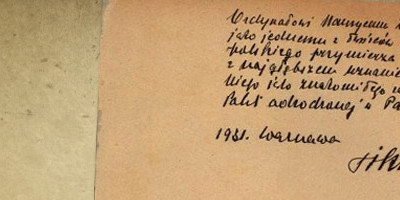 Ordynatowi Maurycemu Z
jako jednemu z twórców
polskiego przymierza
z najgłębszem uznaniem
Niego jako znakomitego
Polski odrodzonej u Pa
1931. Warszawa